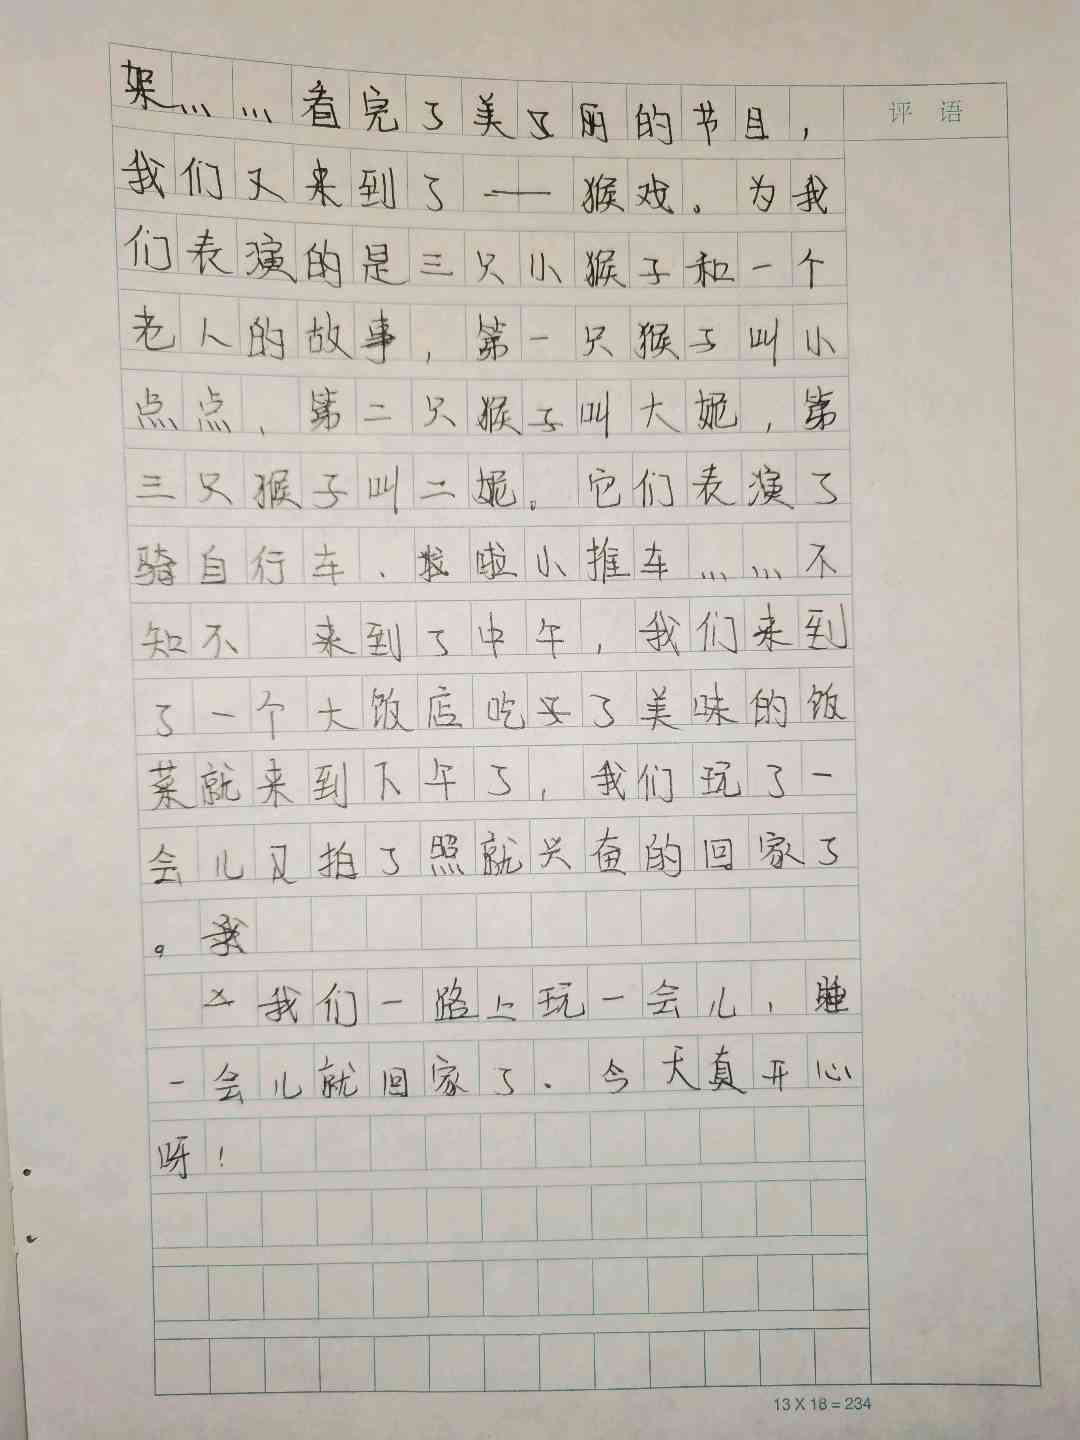 架……看完了美了丽的节目，
评语
我们又来到了——猴戏。为我
们表演的是三只小猴子和一个
老人的故事，第一只猴子叫小
点点，第二只猴子叫大妮，第
三只猴子叫二妮。它们表演了
骑自行车、拉小推车……不
知不 来到了中午，我们来到
了一个大饭店吃了美味的饭
菜就来到下午了，我们玩了一
会儿又拍了照就兴奋的回家了
。我
我们一路上玩一会儿，睡
一会儿就回家了.今天真开心
呀！
13 X 18 = 234